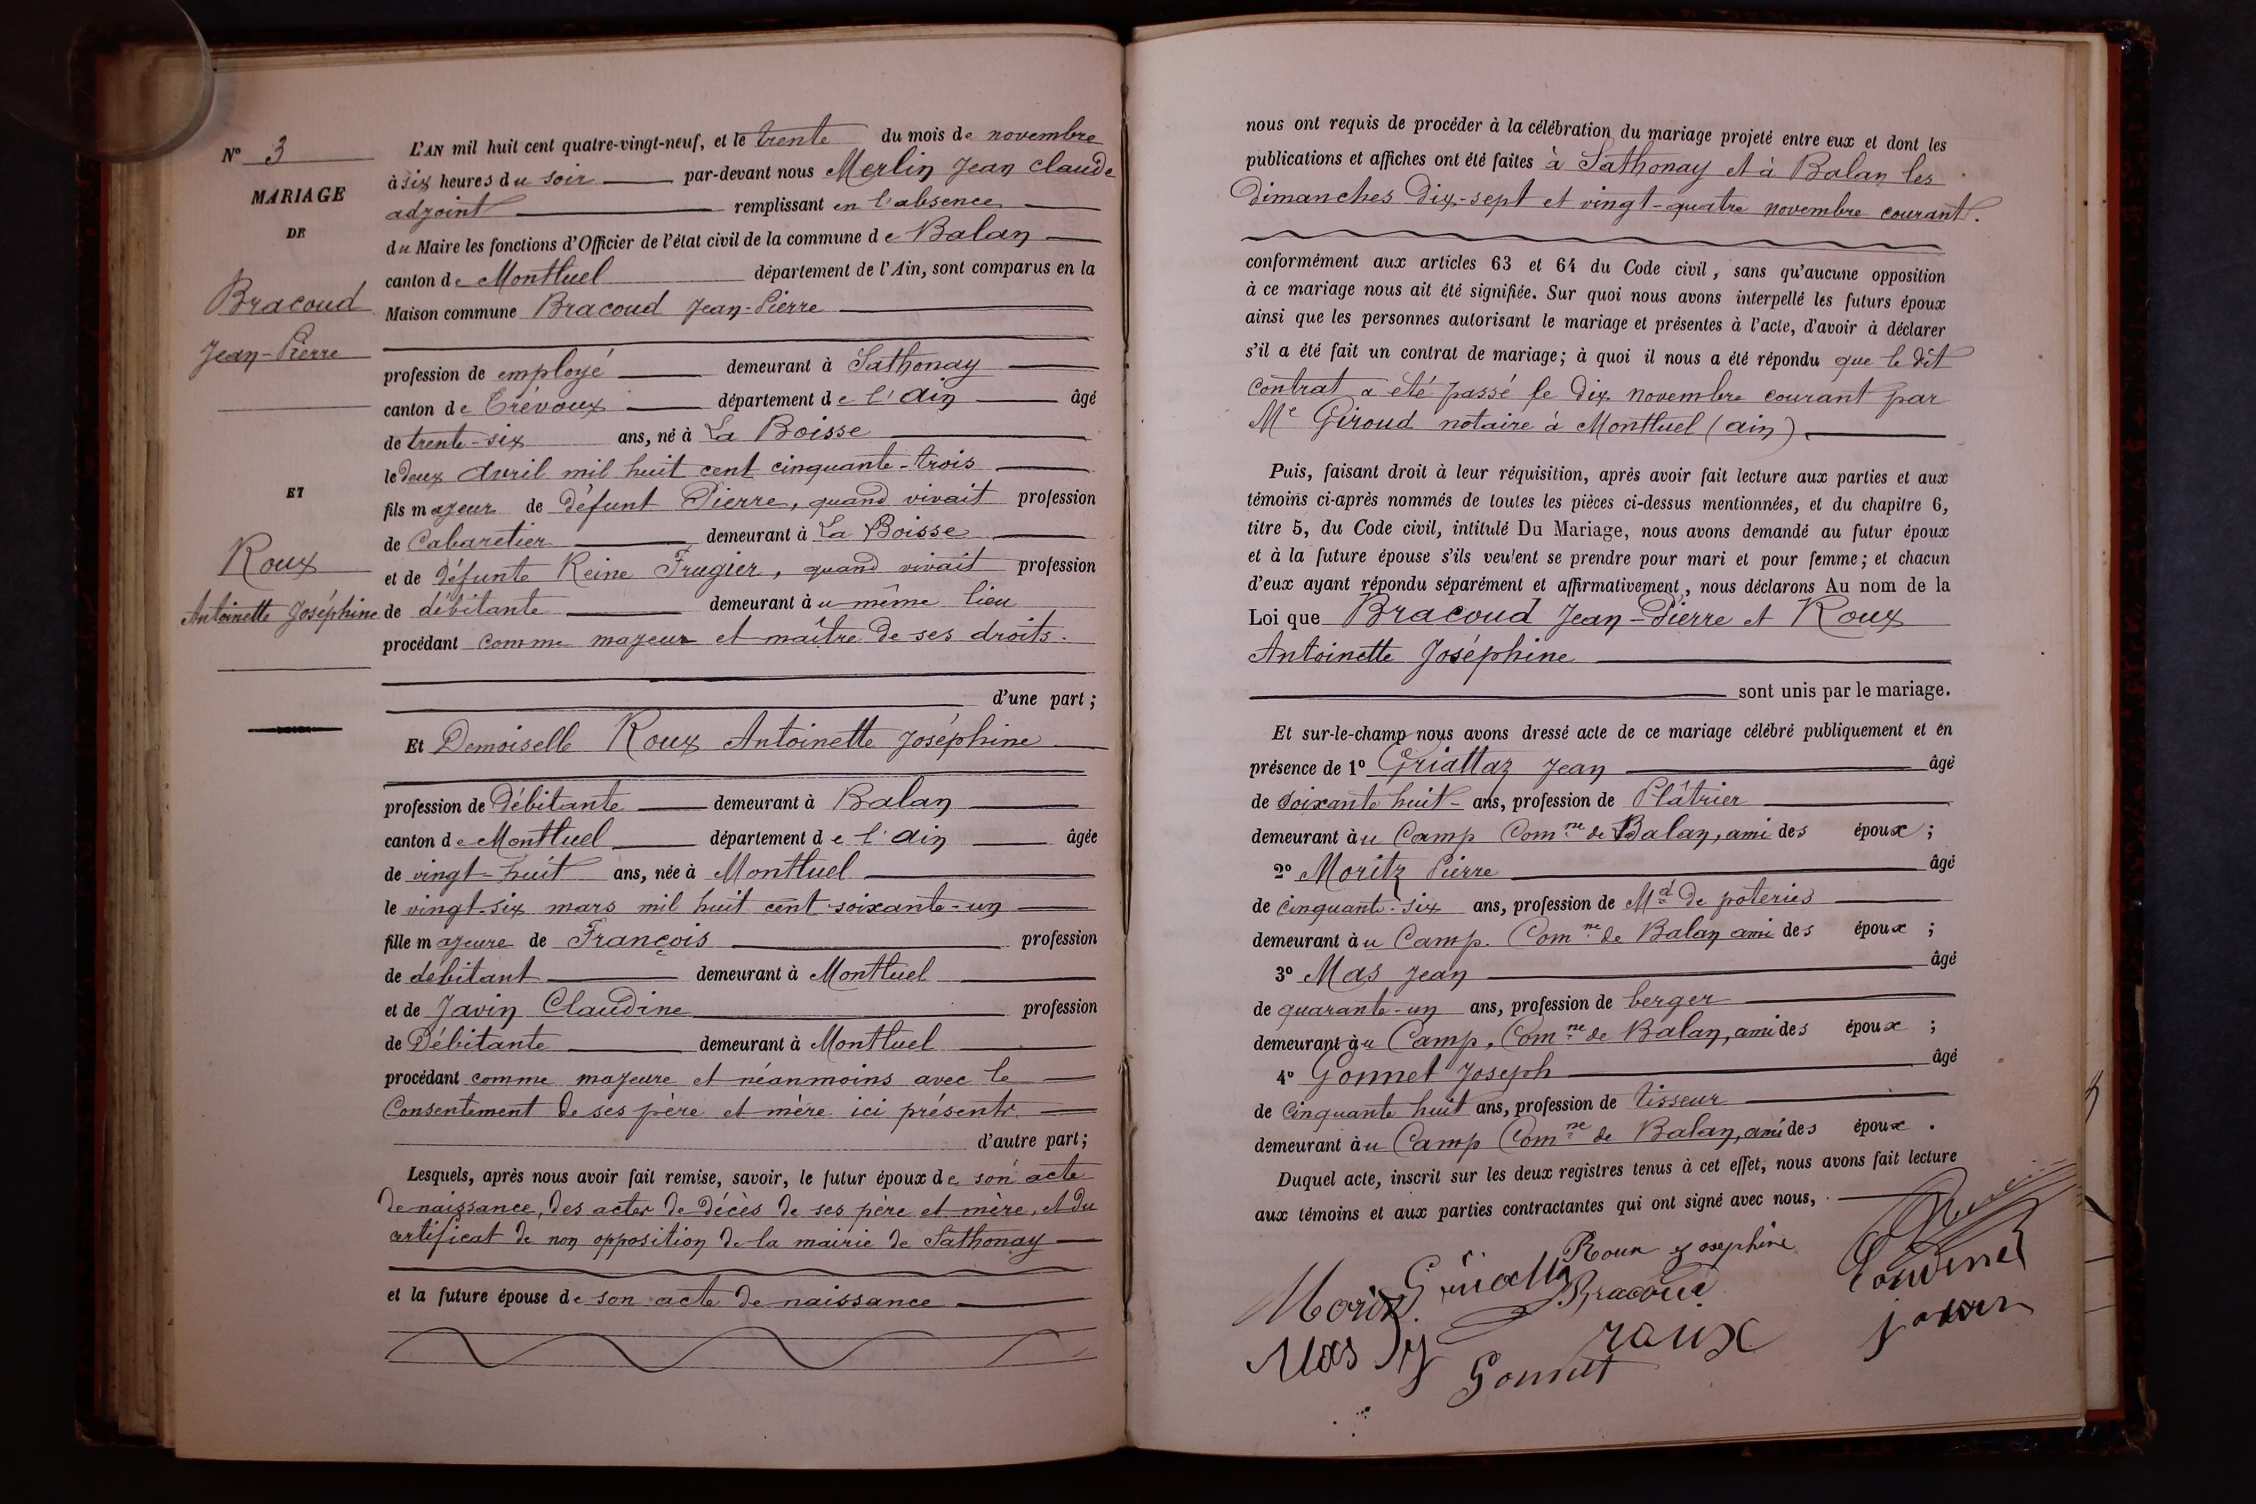 N° 3
MARIAGE
DE
Bracoud
Jean-Pierre
ET
Roux
Antoinette Joséphine
L'AN mil huit cent quatre-vingt-neuf, et le trente du mois de novembre
à six heures du soir par-devant nous Merlin Jean Claude
adjoint remplissant en l'absence
du Maire les fonctions d'Officier de l'état civil de la commune de Balan
canton de Montluel département de l'Ain, sont comparus en la
Maison commune Bracoud Jean-Pierre
profession de employé demeurant à Sathonay
canton de Trévoux département de l'Ain âgé
de trente-six ans, né à La Boisse
le deux avril mil huit cent cinquante-trois
fils majeur de défunt Pierre, quand vivait profession
de Cabaretier demeurant à La Boisse
et de défunte Reine Frugier, quand vivait profession
de débitante demeurant au même lieu
procédant comme majeur et maître de ses droits.
d'une part ;
Et Demoiselle Roux Antoinette Joséphine
profession de Débitante demeurant à Balan
canton de Montluel département de l'Ain âgée
de vingt-huit ans, née à Montluel
le vingt-six mars mil huit cent soixante-un
fille majeure de François profession
de débitant demeurant à Montluel
et de Javin Claudine profession
de Débitante demeurant à Montluel
procédant comme majeure et néanmoins avec le
Consentement de ses père et mère ici présents
d'autre part ;
Lesquels, après nous avoir fait remise, savoir, le futur époux de son acte
de naissance, des actes de décès de ses père et mère, et du
certificat de non opposition de la mairie de Sathonay
et la future épouse de son acte de naissance
nous ont requis de procéder à la célébration du mariage projeté entre eux et dont les
publications et affiches ont été faites à Sathonay et à Balan les
dimanches dix-sept et vingt-quatre novembre courant.
conformément aux articles 63 et 64 du Code civil, sans qu'aucune opposition
à ce mariage nous ait été signifiée. Sur quoi nous avons interpellé les futurs époux
ainsi que les personnes autorisant le mariage et présentes à l'acte, d'avoir à déclarer
s'il a été fait un contrat de mariage ; à quoi il nous a été répondu que le dit
contrat a été passé le dix novembre courant par
Me Giroud notaire à Montluel (ain).
Puis, faisant droit à leur réquisition, après avoir fait lecture aux parties et aux
témoins ci-après nommés de toutes les pièces ci-dessus mentionnées, et du chapitre 6,
titre 5, du Code civil, intitulé Du Mariage, nous avons demandé au futur époux
et à la future épouse s'ils veulent se prendre pour mari et pour femme ; et chacun
d'eux ayant répondu séparément et affirmativement, nous déclarons Au nom de la
Loi que Bracoud Jean-Pierre et Roux
Antoinette Joséphine
sont unis par le mariage.
Et sur-le-champ nous avons dressé acte de ce mariage célébré publiquement et en
présence de 1° Griattaz Jean âgé
de soixante huit ans, profession de Plâtrier
demeurant au Camp Comne de Balan, ami des époux ;
2° Moritz Pierre âgé
de cinquante-six ans, profession de Md de poteries
demeurant au Camp. Comne de Balan ami des époux ;
3° Mas Jean âgé
de quarante-un ans, profession de berger
demeurant au Camp, Comne de Balan, ami des époux ;
4° Gonnet Joseph âgé
de cinquante huit ans, profession de tisseur
demeurant au Camp Comne de Balan, ami des époux .
Duquel acte, inscrit sur les deux registres tenus à cet effet, nous avons fait lecture
aux témoins et aux parties contractantes qui ont signé avec nous,
Roux Josephine
Moritz
Bracoud
Mas
roux
Gonnet
javin